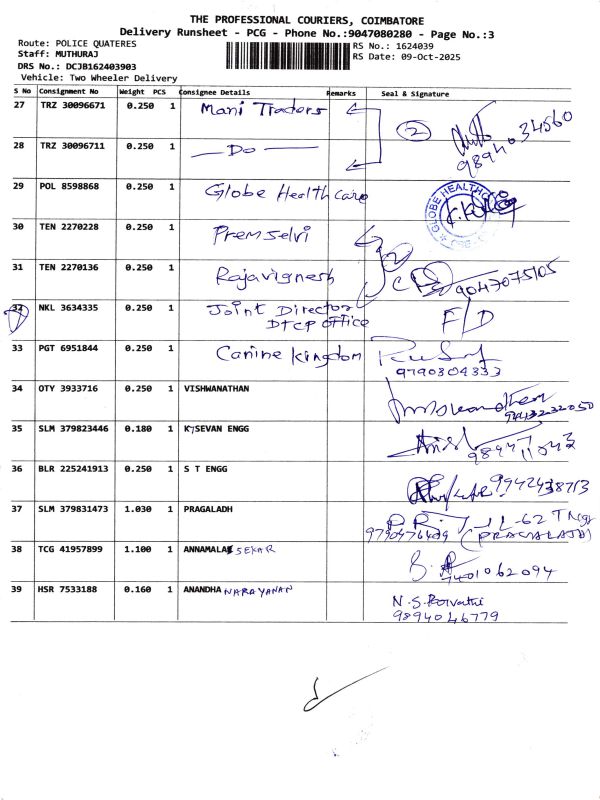 THE PROFESSIONAL COURIERS, COIMBATORE
Delivery Runsheet - PCG - Phone No.:9047080280 - Page No.:3
Route: POLICE QUATERES
Staff: MUTHURAJ
DRS No.: DCJB162403903
Vehicle: Two Wheeler Delivery
RS No.: 1624039
RS Date: 09-Oct-2025
S No Consignment No Weight PCS Consignee Details Remarks Seal & Signature
27 TRZ 30096671 0.250 1 Mani Traders
2 9894034560
28 TRZ 30096711 0.250 1 — Do —
29 POL 8598868 0.250 1 Globe Health care
GLOBE HEALTHC
30 TEN 2270228 0.250 1 Premselvi
2
31 TEN 2270136 0.250 1 Rajavignesh
9047075105
32 NKL 3634335 0.250 1 Joint Director F/D
DTCP office
33 PGT 6951844 0.250 1 Canine kingdom
9790304333
34 OTY 3933716 0.250 1 VISHWANATHAN
35 SLM 379823446 0.180 1 K7SEVAN ENGG
36 BLR 225241913 0.250 1 S T ENGG
9942438713
37 SLM 379831473 1.030 1 PRAGALADH
9790476409 (PRAGALADH)
38 TCG 41957899 1.100 1 ANNAMALAI SEKAR
7401062094
39 HSR 7533188 0.160 1 ANANDHA NARAYANAN
N.S. Parvathi
9894046779